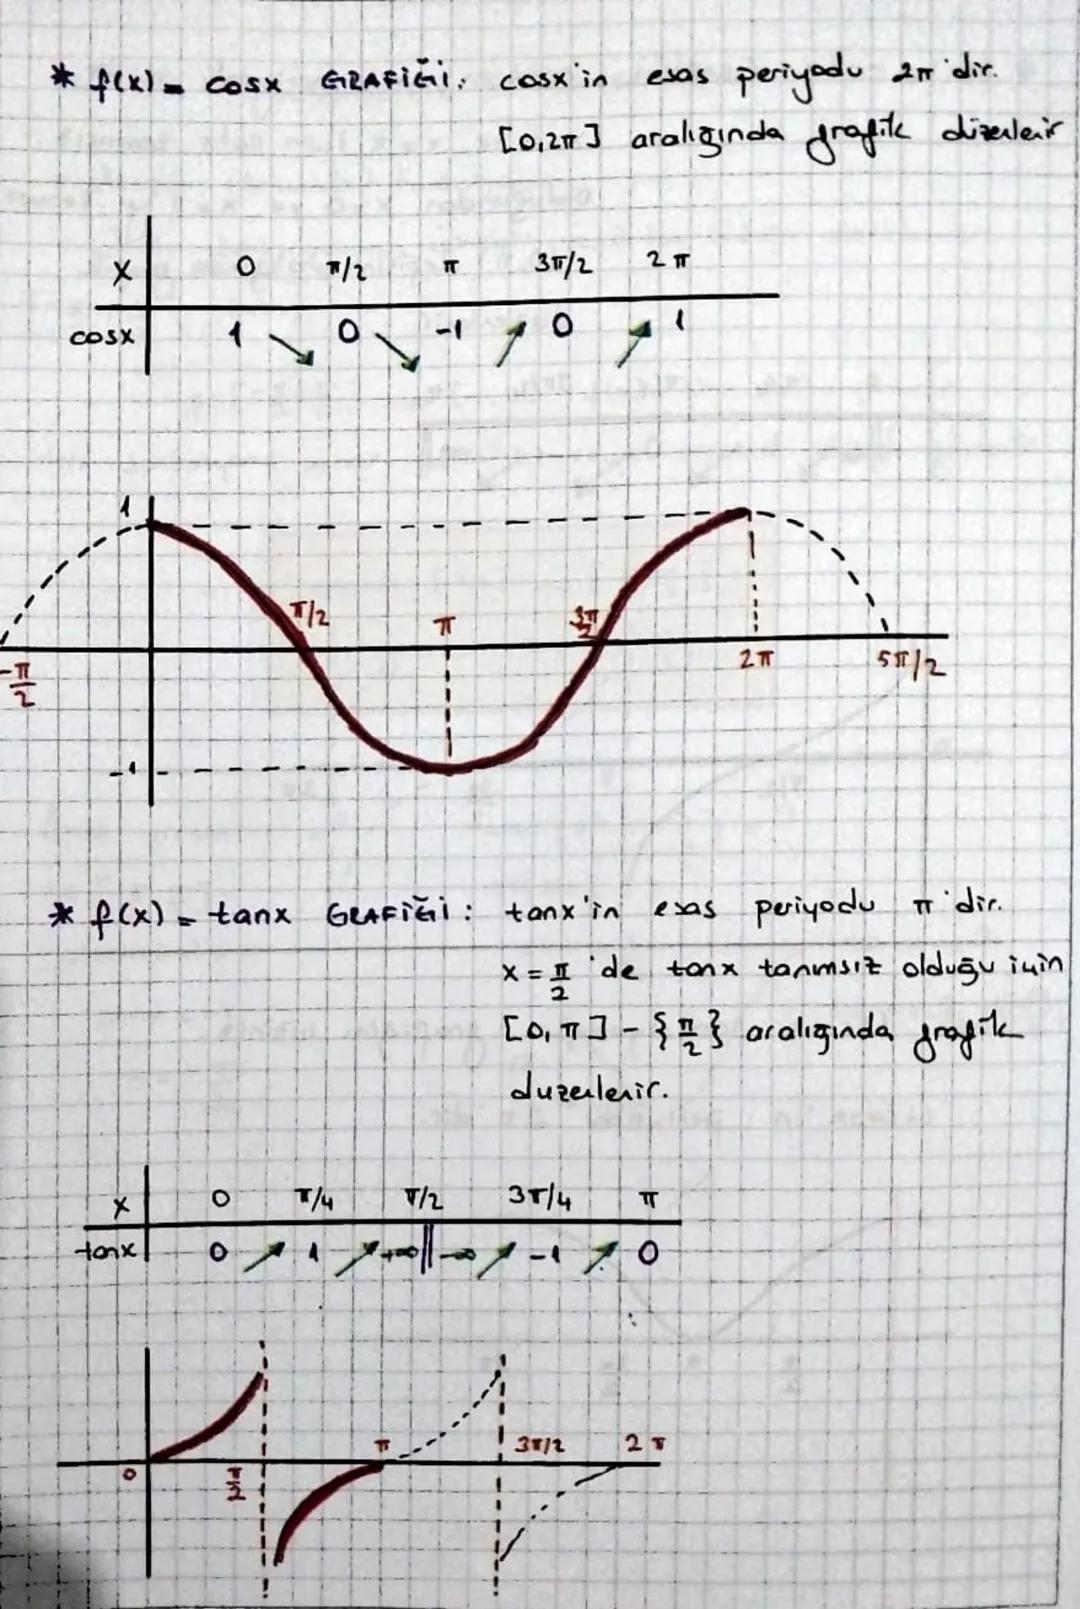 * f(x) = cosx GRAFİĞİ: cosx'in esas periyodu 2π'dir.
[0,2π] aralığında grafik düzenlenir
x 0 π/2 π 3π/2 2π
cosx 1 ↘ 0 ↘ -1 ↗ 0 ↗ 1
1
π/2 π 3π/2
-π/2 2π 5π/2
-1
* f(x) = tanx GRAFİĞİ: tanx'in esas periyodu π'dir.
x = π/2 'de tanx tanımsız olduğu için
[0, π] - {π/2} aralığında grafik
duzenlenir.
x 0 π/4 π/2 3π/4 π
tanx 0 ↗ 1 ↗ +∞ || -∞ ↗ -1 ↗ 0
π 3π/2 2π
0 π/2